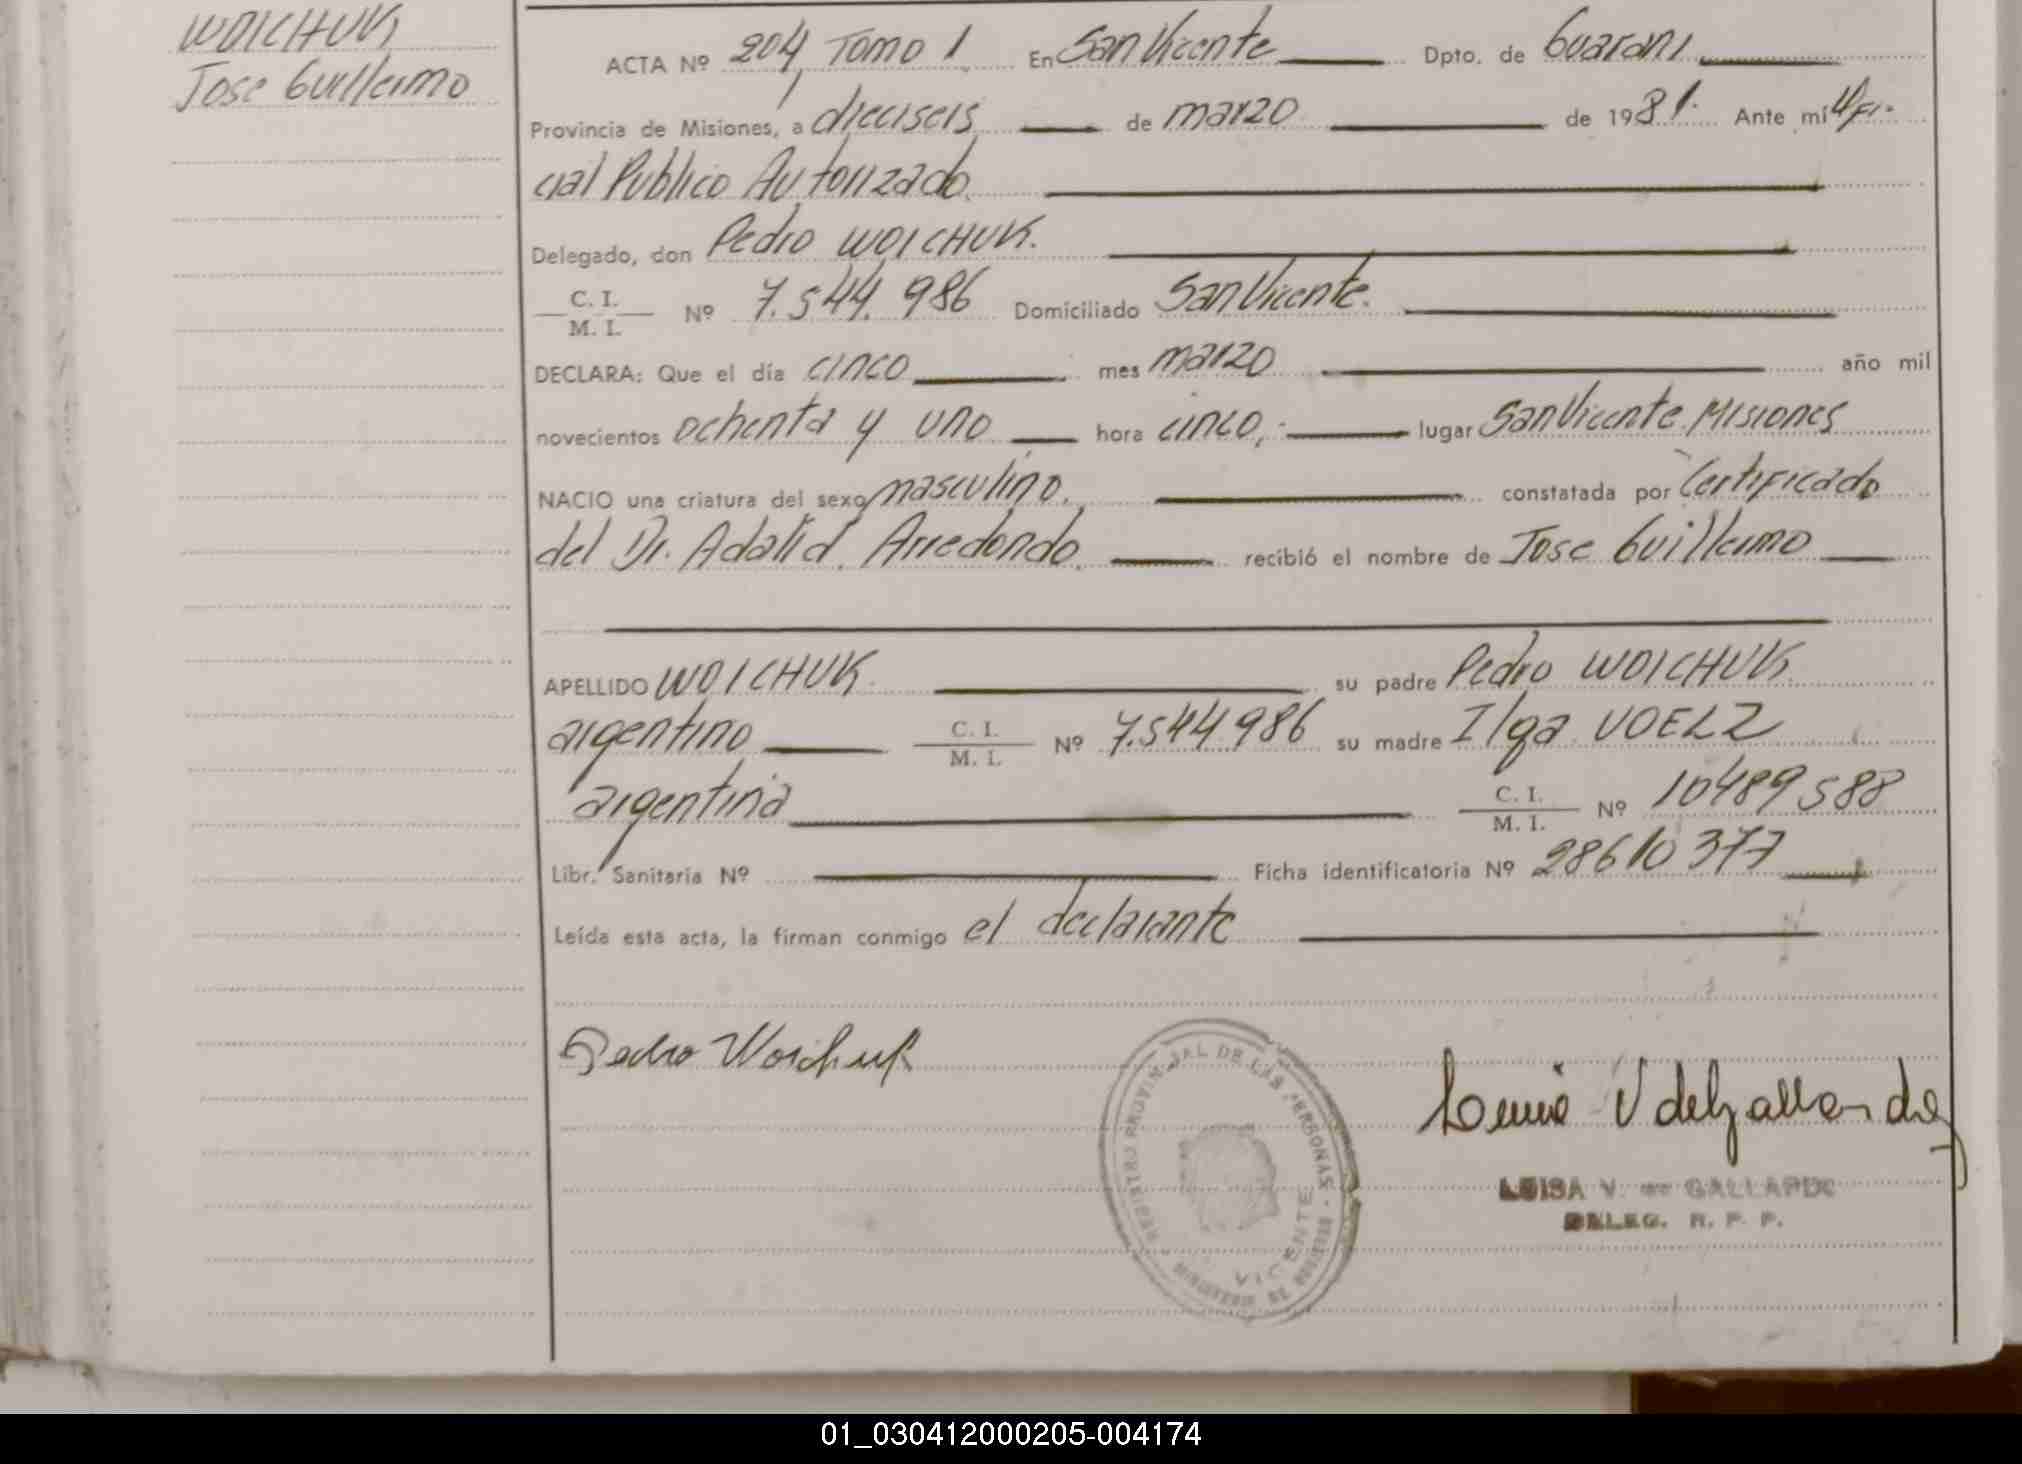 WOICHUK
Jose Guillermo
ACTA Nº 204, Tomo 1 En San Vicente Dpto. de Guarani
Provincia de Misiones, a dieciseis de marzo de 1981. Ante mí Ofi-
cial Publico Autorizado.
Delegado, don Pedro WOICHUK.
C. I.
M. I. Nº 7.544.986 Domiciliado San Vicente.
DECLARA: Que el día cinco mes marzo año mil
novecientos ochenta y uno hora cinco, lugar San Vicente Misiones
NACIO una criatura del sexo masculino. constatada por Certificado
del Dr. Adalid Arredondo. recibió el nombre de Jose Guillermo
APELLIDO WOICHUK. su padre Pedro WOICHUK.
argentino C. I.
M. I. Nº 7.544986 su madre Ilga VOELZ
argentina C. I.
M. I. Nº 10489588
Libr. Sanitaria Nº Ficha identificatoria Nº 28610377
Leída esta acta, la firman conmigo el declarante
Pedro Woichuk
REGISTRO PROVINCIAL DE LAS PERSONAS - MINISTERIO DE
VICENTE
LUISA V. de GALLARDO
DELEG. R. P. P.
01_030412000205-004174